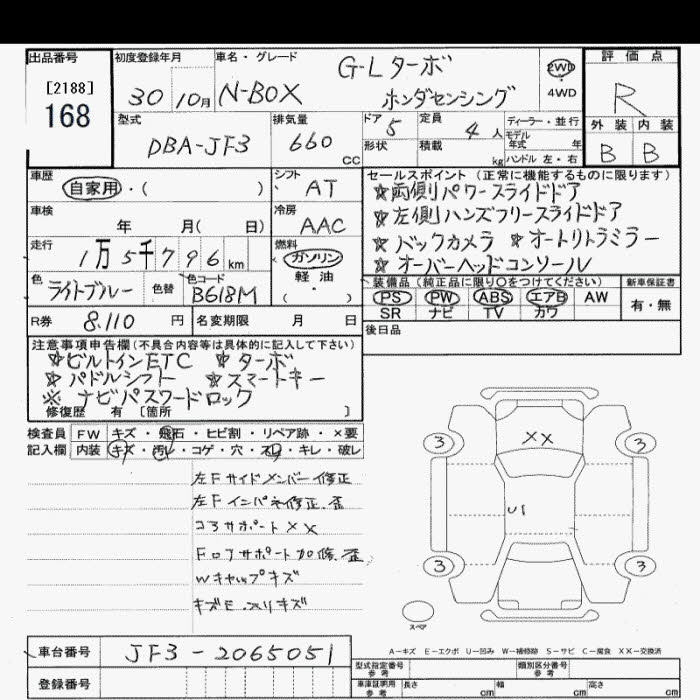 出品番号
[2188]
168
初度登録年月
30 10月
車名・グレード
N-BOX
G-Lターボ
ホンダセンシング
2WD
・
4WD
評価点
R
外装 内装
B B
型式
DBA-JF3
排気量
660 cc
ドア 5
定員 4人
ディーラー・並行
モデル年式 年
形状
積載 kg
ハンドル 左・右
車歴
自家用・( )
シフト AT
車検
年 月( 日)
冷房 AAC
走行
1万5千796km
燃料
ガソリン
軽油
・
( )
色 ライトブルー
色替
色コード B618M
R券 8,110円
名変期限 月 日
セールスポイント (正常に機能するものに限ります)
☆両側パワースライドドア
☆左側ハンズフリースライドドア
☆バックカメラ ☆オートリトラミラー
☆オーバーヘッドコンソール
装備品(純正品に限り〇をつけてください)
PS PW ABS エアB AW
SR ナビ TV カワ
新車保証書
有・無
後日品
注意事項申告欄(不具合内容等は具体的に記入して下さい)
☆ビルトインETC ☆ターボ
☆パドルシフト ☆スマートキー
※ ナビパスワードロック
修復歴 有 [箇所 ]
検査員記入欄
FW キズ・飛石・ヒビ割・リペア跡・×要
内装 キズ・汚レ・コゲ・穴・スレ・キレ・破レ
左Fサイドメンバー修正
左Fインパネ修正、歪
コアサポート××
Fロアサポート加修、歪
Wキャップキズ
キズE、スリキズ
××
3 3
U1
3 3
スペア
A-キズ E-エクボ U-凹み W-補修跡 S-サビ C-腐食 XX-交換済
車台番号 JF3-2065051
登録番号
型式指定番号 参考
類別区分番号 参考
車庫証明用 参考
長さ cm 幅 cm 高さ cm